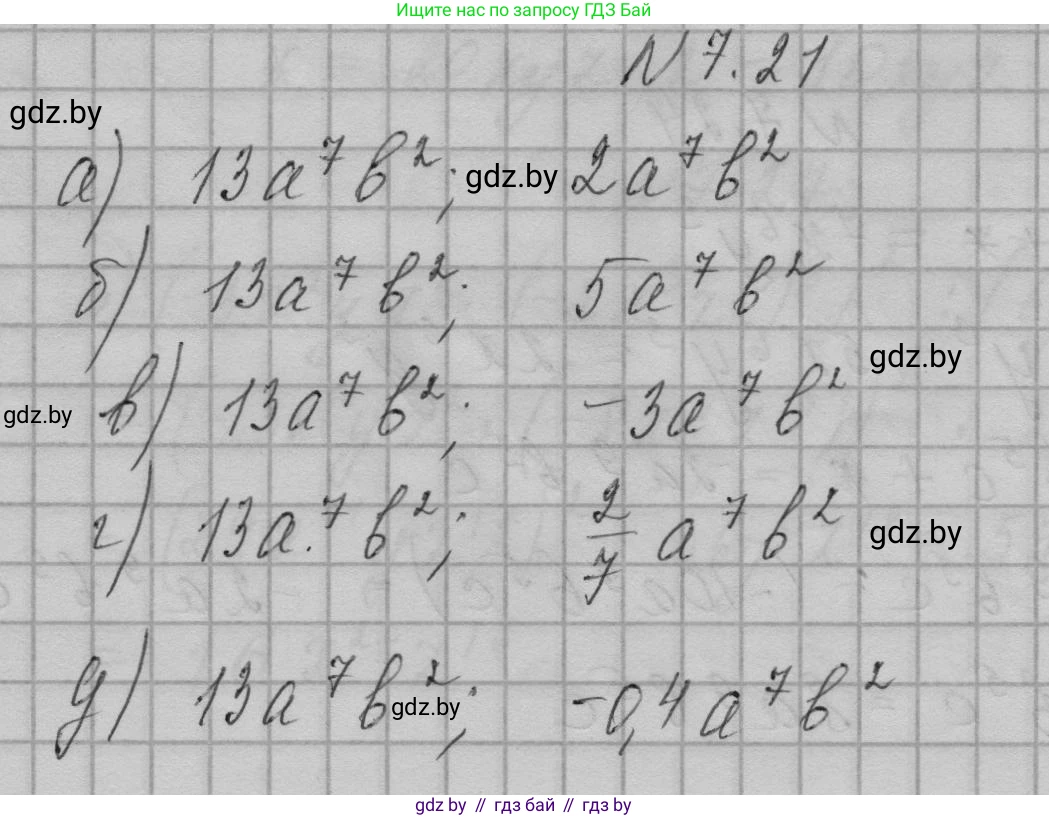 Ищите нас по запросу ГДЗ Бай
N 7.21
gdz.by
а) 13a⁷b²; gdz.by 2a⁷b²
б) 13a⁷b²; 5a⁷b²
gdz.by
gdz.by в) 13a⁷b²; -3a⁷b²
г) 13a.⁷b²; 2/7 a⁷b² gdz.by
д) 13a⁷b²; gdz.by -0,4a⁷b²
gdz by // гдз бай // гдз by